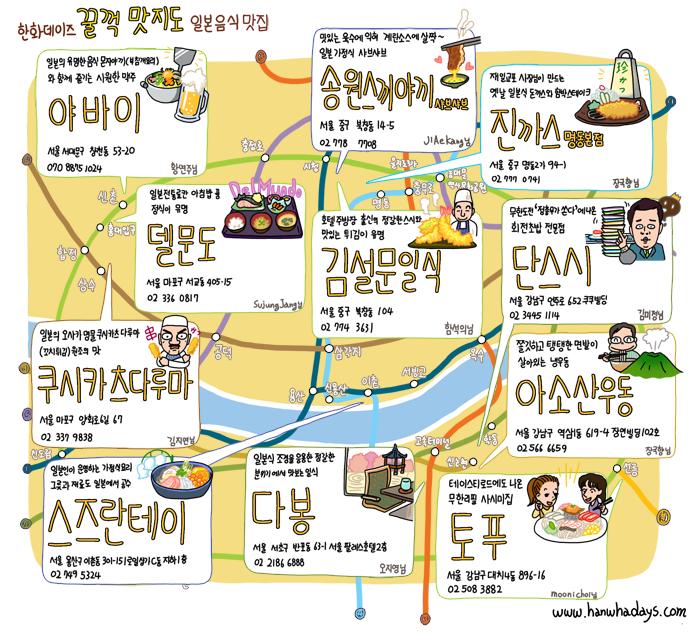 한화데이즈 꿀꺽 맛지도 일본음식 맛집
와 함께 즐기는 시원한 맥주
야바이
서울 서대문구 창천동 53-20
070 8875 1024
황연주님
맛있는 육수에 익혀 계란소스에 살짝~
일본 가정식 샤브샤브
송원스끼야끼 샤브샤브
서울 중구 북창동 14-5
02 778 7708
JIAekang님
재일교포 사장님이 만드는
옛날 일본식 돈까스와 함박스테이크
진까스 명동본점
서울 중구 명동2가 94-1
02 777 0741
장국향님
일본전통료칸 아침밥 풍
정식이 유명
DelMundo
델문도
서울 마포구 서교동 405-15
02 336 0817
SujungJang님
호텔 주방장 출신의 정갈한스시와
맛있는 튀김이 유명
김설문일식
서울 중구 북창동 104
02 774 3631
함석의님
무한도전 '정총무가 쏜다'에 나온
회전초밥 전문점
단스시
서울 강남구 652 쿠쿠빌딩
02 3445 1114
김미정님
일본의 오사카 명물 쿠시카츠 다루마
(꼬치튀김) 원조의 맛
쿠시카츠다루마
서울 마포구 양화로6길 67
02 337 9838
김지연님
쫄깃하고 탱탱한 면발이
살아있는 냉우동
아소산우동
서울 강남구 역삼1동 619-4 장연빌딩102호
02 566 6659
장국향님
일본인이 운영하는 가정식요리
그릇과 재료도 일본에서 공수
스즈란테이
서울 용산구 이촌동 301-151 로얄상가C동 지하1층
02 749 5324
일본식 조경을 응용한 정갈한
분위기에서 맛보는 일식
다봉
서울 서초구 반포동 63-1 서울 팔레스호텔 2층
02 2186 6888
오지영님
테이스티로드에도 나온
무한리필 사시미집
토푸
서울 강남구 대치4동 896-16
02 508 3882
moonichoi님
충정로
시청
을지로
명동
충무로
신촌
홍대입구
합정
상수
공덕
삼각지
용산
신용산
이촌
서빙고
옥수
고속터미널
신논현
선릉
www.hanwhadays.com